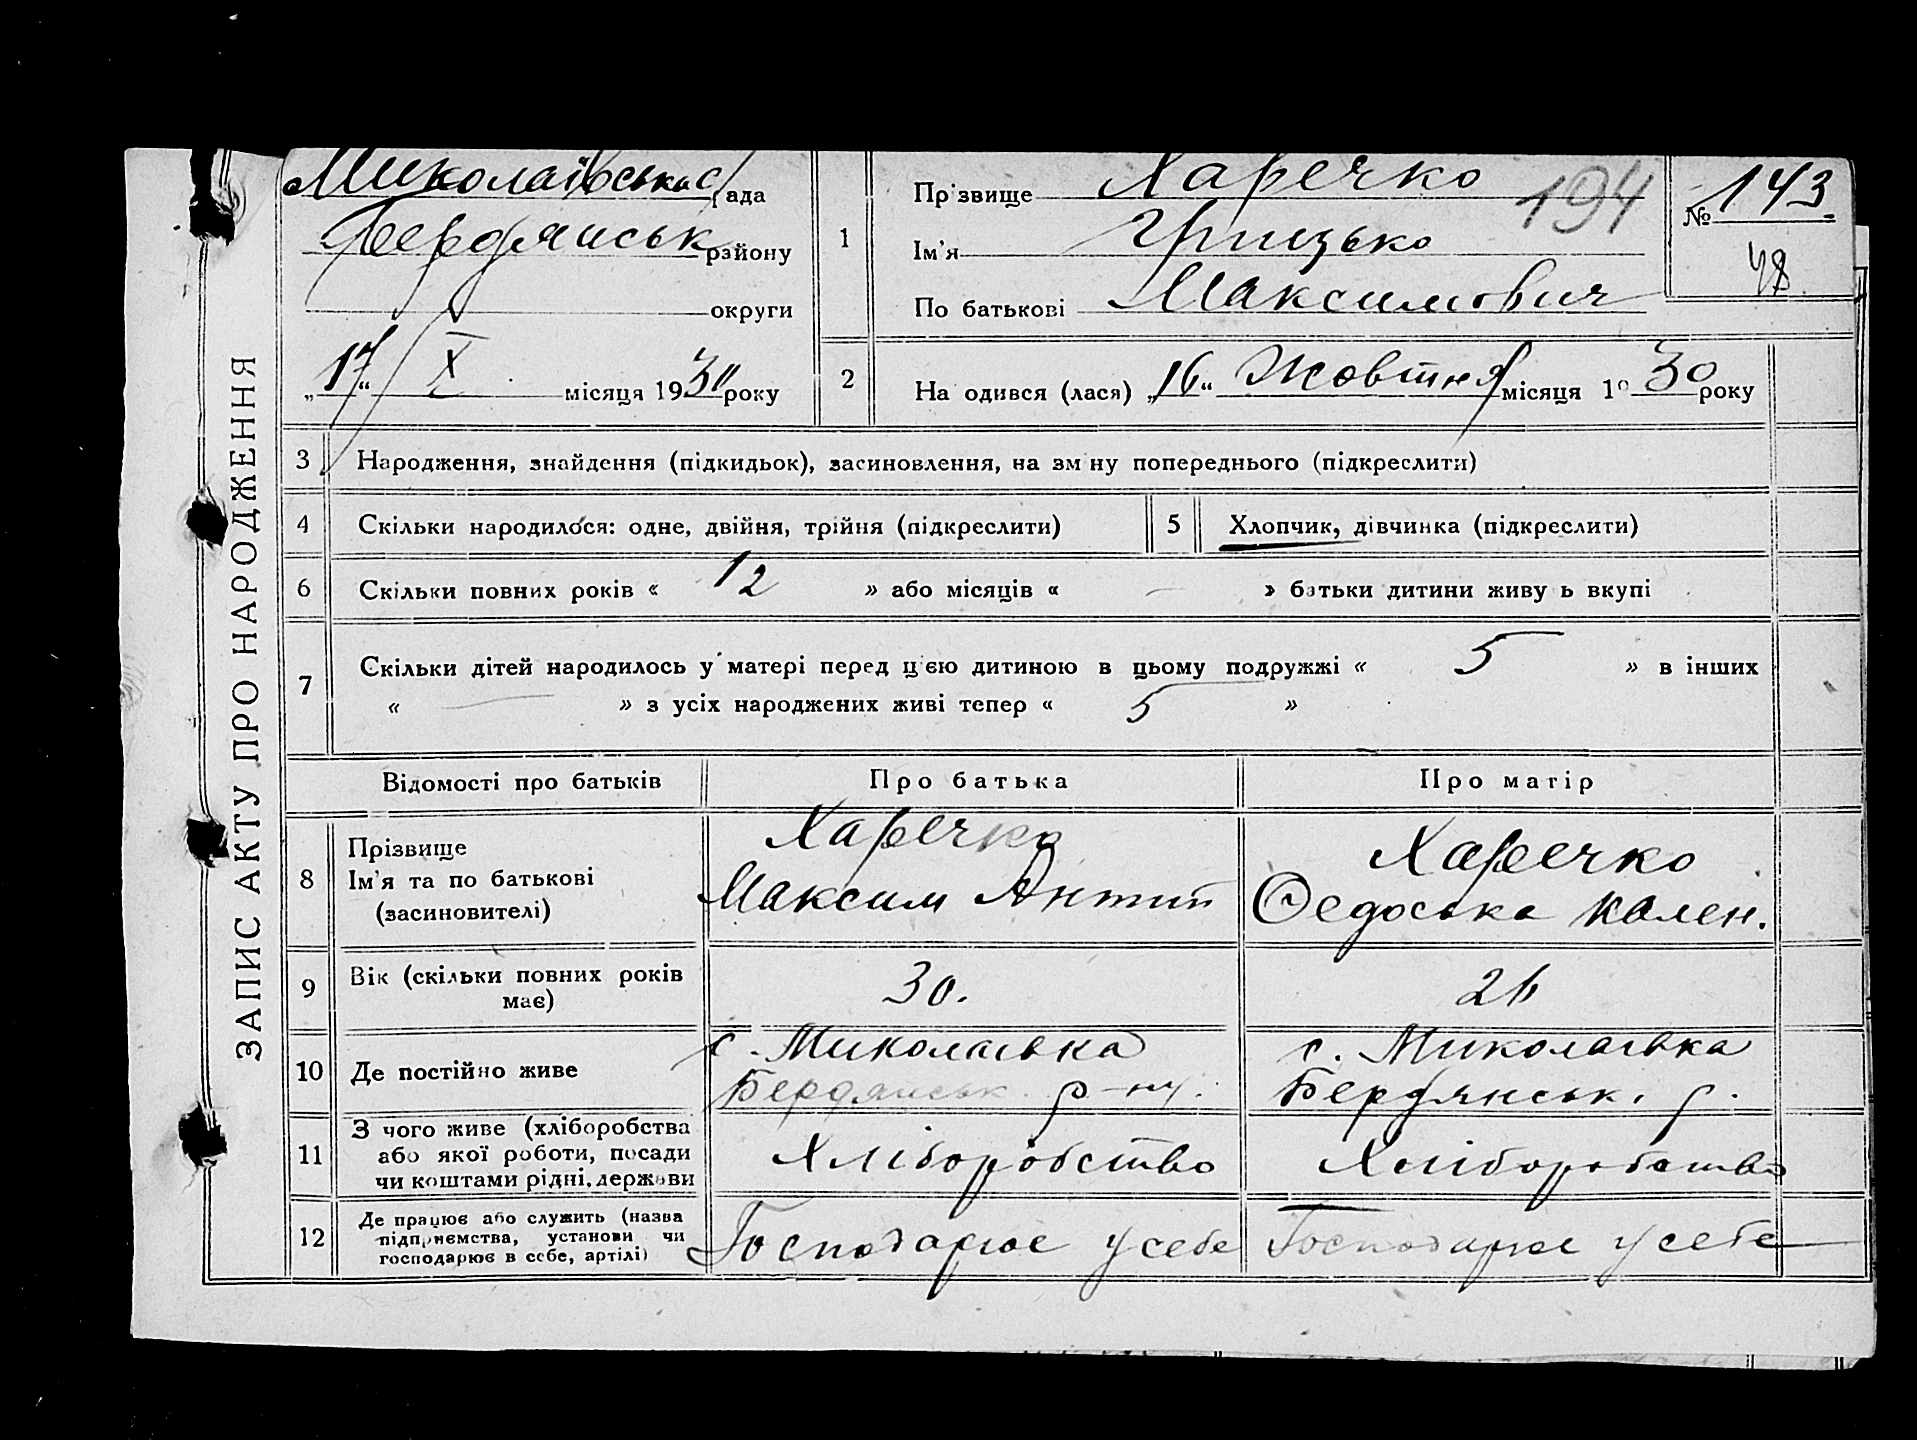 ЗАПИС АКТУ ПРО НАРОДЖЕННЯ
Миколаївська рада
Бердянськ району
округи
„17“ X місяця 1930 року
1
Прізвище Харечко
Ім'я Грицько
По батькові Максимович
194
№ 143.
48.
2
На одився (лася) „16“ Жовтня місяця 19 30 року
3 Народження, знайдення (підкидьок), засиновлення, на зм ну попереднього (підкреслити)
4 Скільки народилося: одне, двійня, трійня (підкреслити)
5 Хлопчик, дівчинка (підкреслити)
6 Скільки повних років « 12 » або місяців « — » батьки дитини живу ь вкупі
7 Скільки дітей народилось у матері перед цією дитиною в цьому подружжі « 5 » в інших
« — » з усіх народжених живі тепер « 5 »
Відомості про батьків Про батька Про матір
8 Прізвище
Ім'я та по батькові
(засиновителі)
Харечко
Максим Антип
Харечко
Федоська Кален.
9 Вік (скільки повних років
має)
30.
26
10 Де постійно живе
с. Миколаївка
Бердянськ. р-ну.
с. Миколаївка
Бердянськ. р.
11 З чого живе (хліборобства
або якої роботи, посади
чи коштами рідні, держави
Хліборобство
Хліборобство
12 Де працює або служить (назва
підприємства, установи чи
господарює в себе, артілі)
Господарює у себе
Господарює у себе